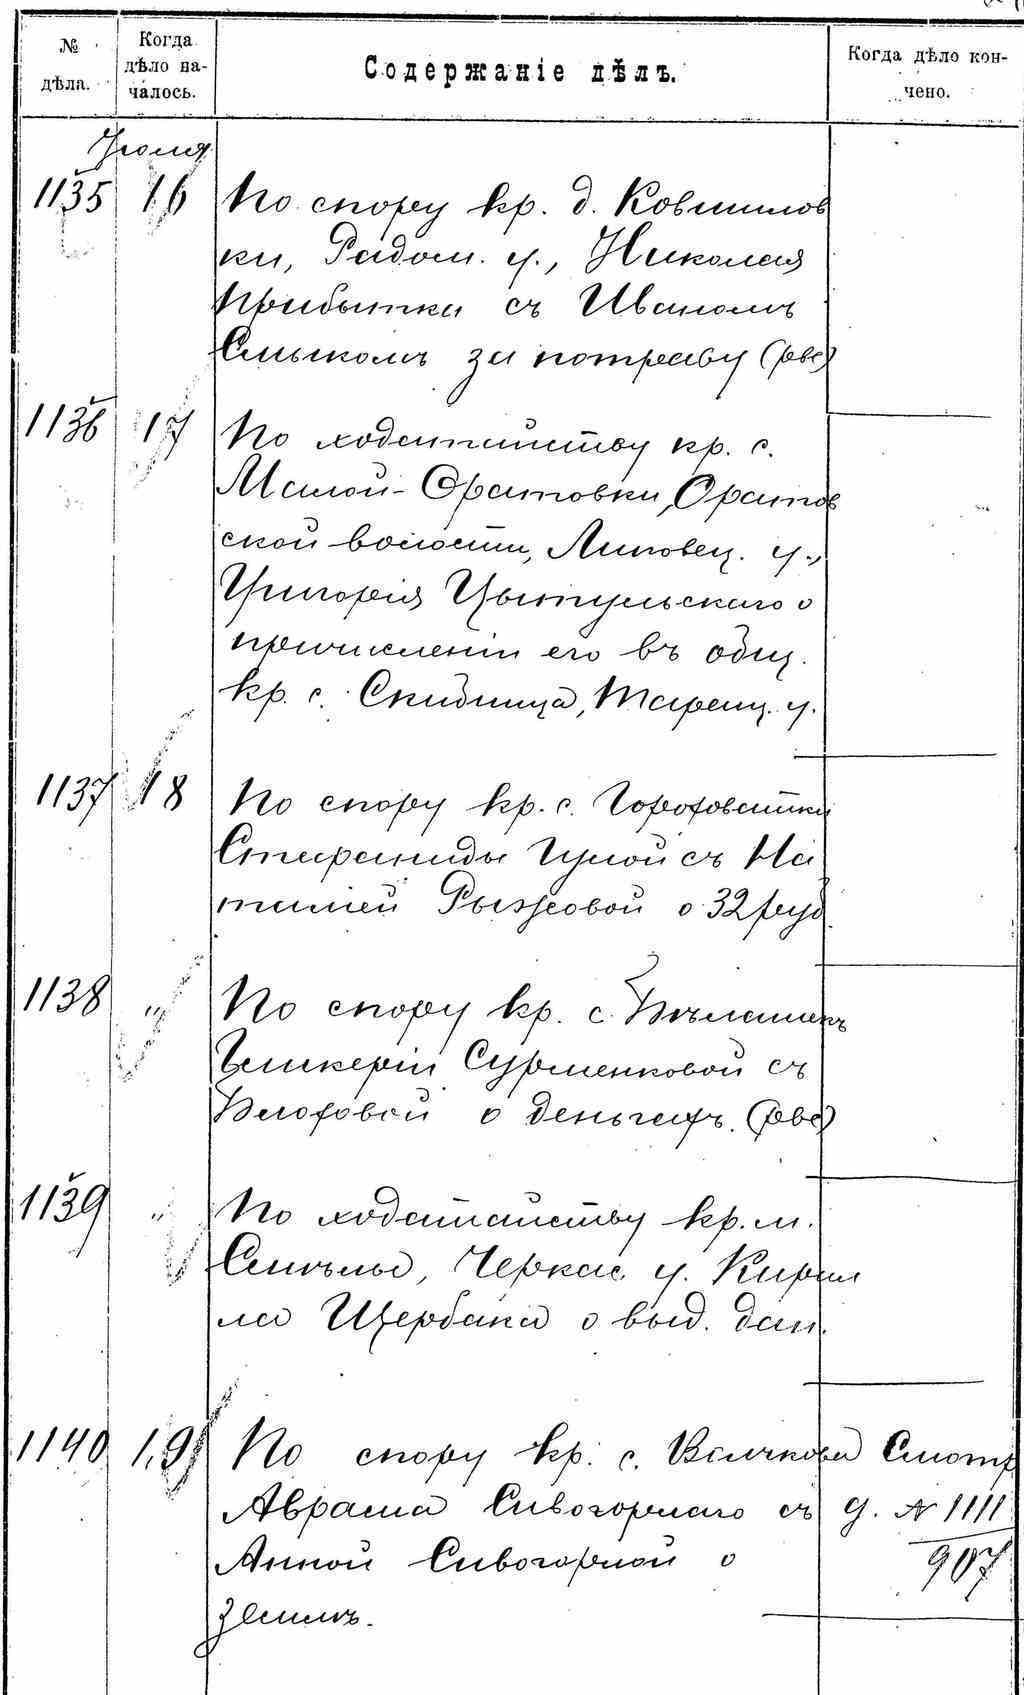 № дѣла.
Когда дѣло на-
чалось.
Содержаніе дѣлъ.
Когда дѣло кон-
чено.
Іюля
1135 16 По спору кр. д. Ковшилов
ки, Радом. у., Николая
Прибытка съ Иваномъ
Смыкомъ за потраву (рвс)
1136 17 По ходатайству кр. с.
Малой-Оратовки, Оратов
ской волости, Липовец. у.,
Григорія Цытульскаго о
причисленіи его въ общ.
кр. с. Скибинца, Таращ. у.
1137 18 По спору кр. с. Гороховатки
Стефаниды Гулой съ На
таліей Рыжовой о 32 руб
1138 „ По спору кр. с. Бѣлашекъ
Гликеріи Сурменковой съ
Блоховой о деньгахъ. (рвс)
1139 „ По ходатайству кр. м.
Смѣлы, Черкас. у. Кирил
ла Щербака о выд. дан.
1140 19 По спору кр. с. Волчкова
Аврама Сивогорнаго съ
Анной Сивогорной о
землѣ.
Смотр
д. № 1111
907